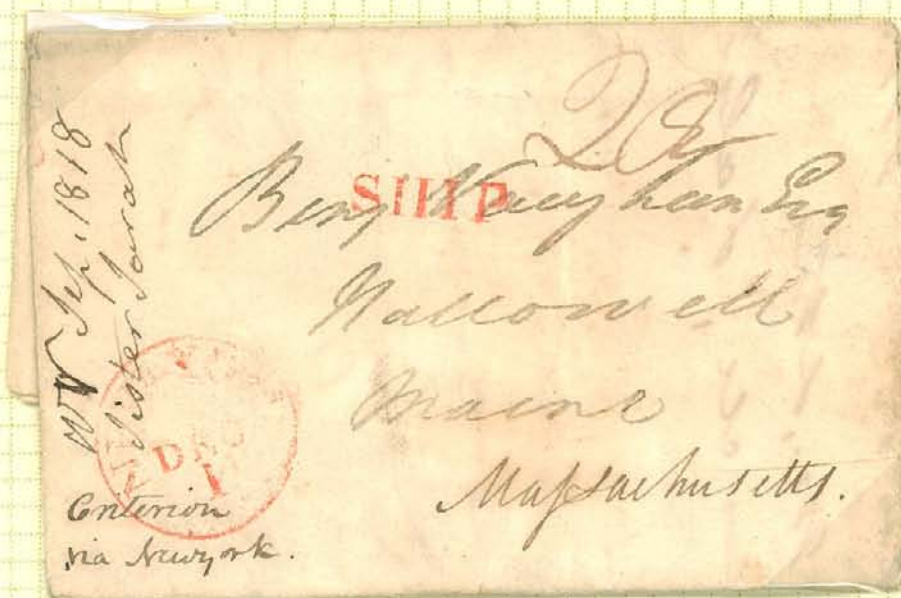 SHIP
Benj Vaughan Esq
Hallowell
Maine
Massachusetts.
WV Sep. 1818
Sister Sarah
DEC
1
Criterion
via Newyork.